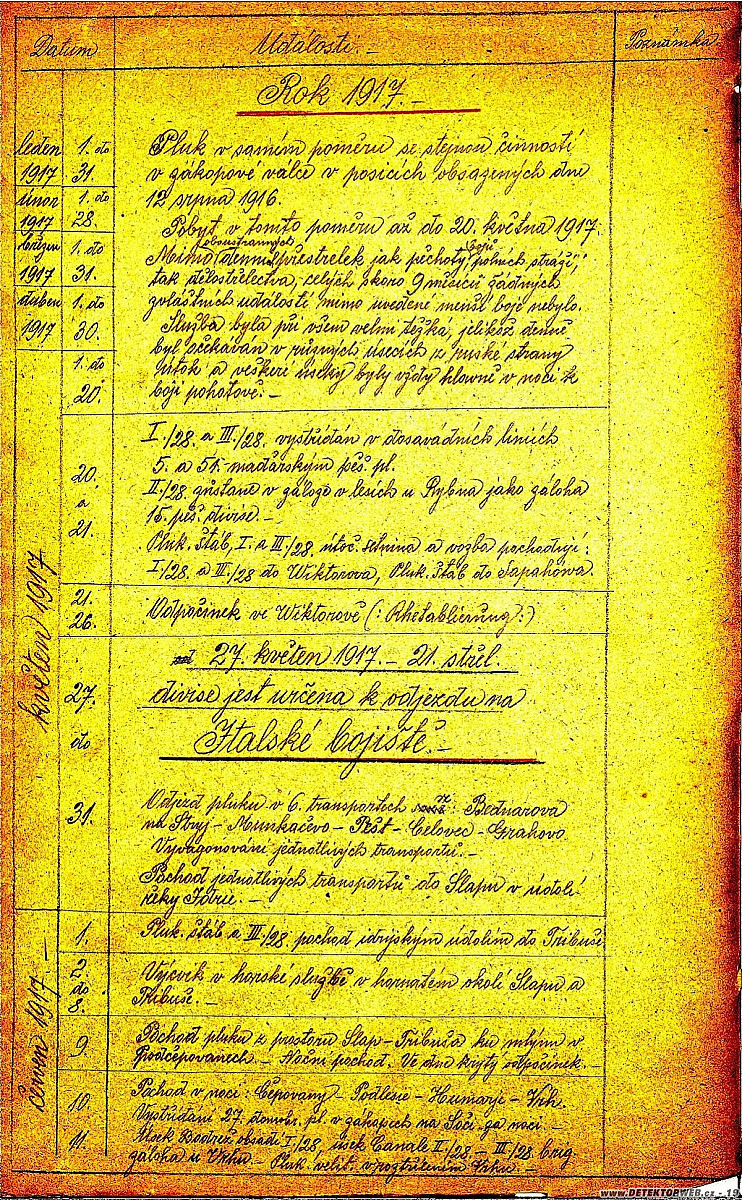 Datum
Události.-
Poznámka
Rok 1917.-
leden 1. do
1917 31.
únor 1. do
1917 28.
březen 1. do
1917 31.
duben 1. do
1917 30.
1. do
20.
Pluk v samém poměru se stejnou činností
v zákopové válce v posicích obsazených dne
12 srpna 1916.
Pobyt v tomto poměru až do 20. května 1917.
oboustranných bojů
Mimo denní přestřelek jak pěchoty, polních stráží,
tak dělostřelectva, celých skoro 9 měsíců žádných
zvláštních událostí mimo uvedené menší boje nebylo.
Služba byla při všem velmi těžká, jelikož denně
byl očekáván v různých úsecích z ruské strany
útok a veškeré úseky byly vždy hlavně v noci k
boji pohotově.-
květen 1917
20.
a
21.
I./28. a III./28. vystřídán v dosavádních liniích
5. a 51. maďarským pěš. pl.
II./28 zůstane v záloze v lesích u Rybna jako záloha
15. pěš. divise.-
Pluk. štáb, I. a III/28 útoč. setnina a vozba pochodují:
I./28. a III/28 do Wiktorova, Pluk. štáb do Sapahówa.
21.
26.
Odpočinek ve Wiktorově (: Rhetablierung :)
27.
do
31.
27. květen 1917.- 21. střel.
divise jest určena k odjezdu na
Italské bojiště.-
Odjezd pluku v 6. transportech z: Bednarova
na Stryj - Munkačevo - Pešť - Celovec - Grahovo.
Vyvagonování jednotlivých transportů.-
Pochod jednotlivých transportů do Slapu v údolí
řeky Idrie.-
červen 1917.-
1.
Pluk. štáb a III./28 pochod idrijským údolím do Tribuše
2.
do
8.
Výcvik v horské službě v hornatém okolí Slapu a
Tribuše.-
9.
Pochod pluku z prostoru Slap - Tribuša ku mlýnu v
Podčepovanech.- Noční pochod. Ve dne krytý odpočinek.-
10.
11.
Pochod v noci: Čepovany - Podlesie - Humarje - Vrh.
Vystřídání 27. domobr. pl. v zákopech na Soči za noci.-
Úsek Bodrež obsadí I/28, úsek Canale II/28 - III/28 brig.
záloha u Vrhu.- Pluk. velit. v Vrhu.-
www.DETEKTORWEB.cz